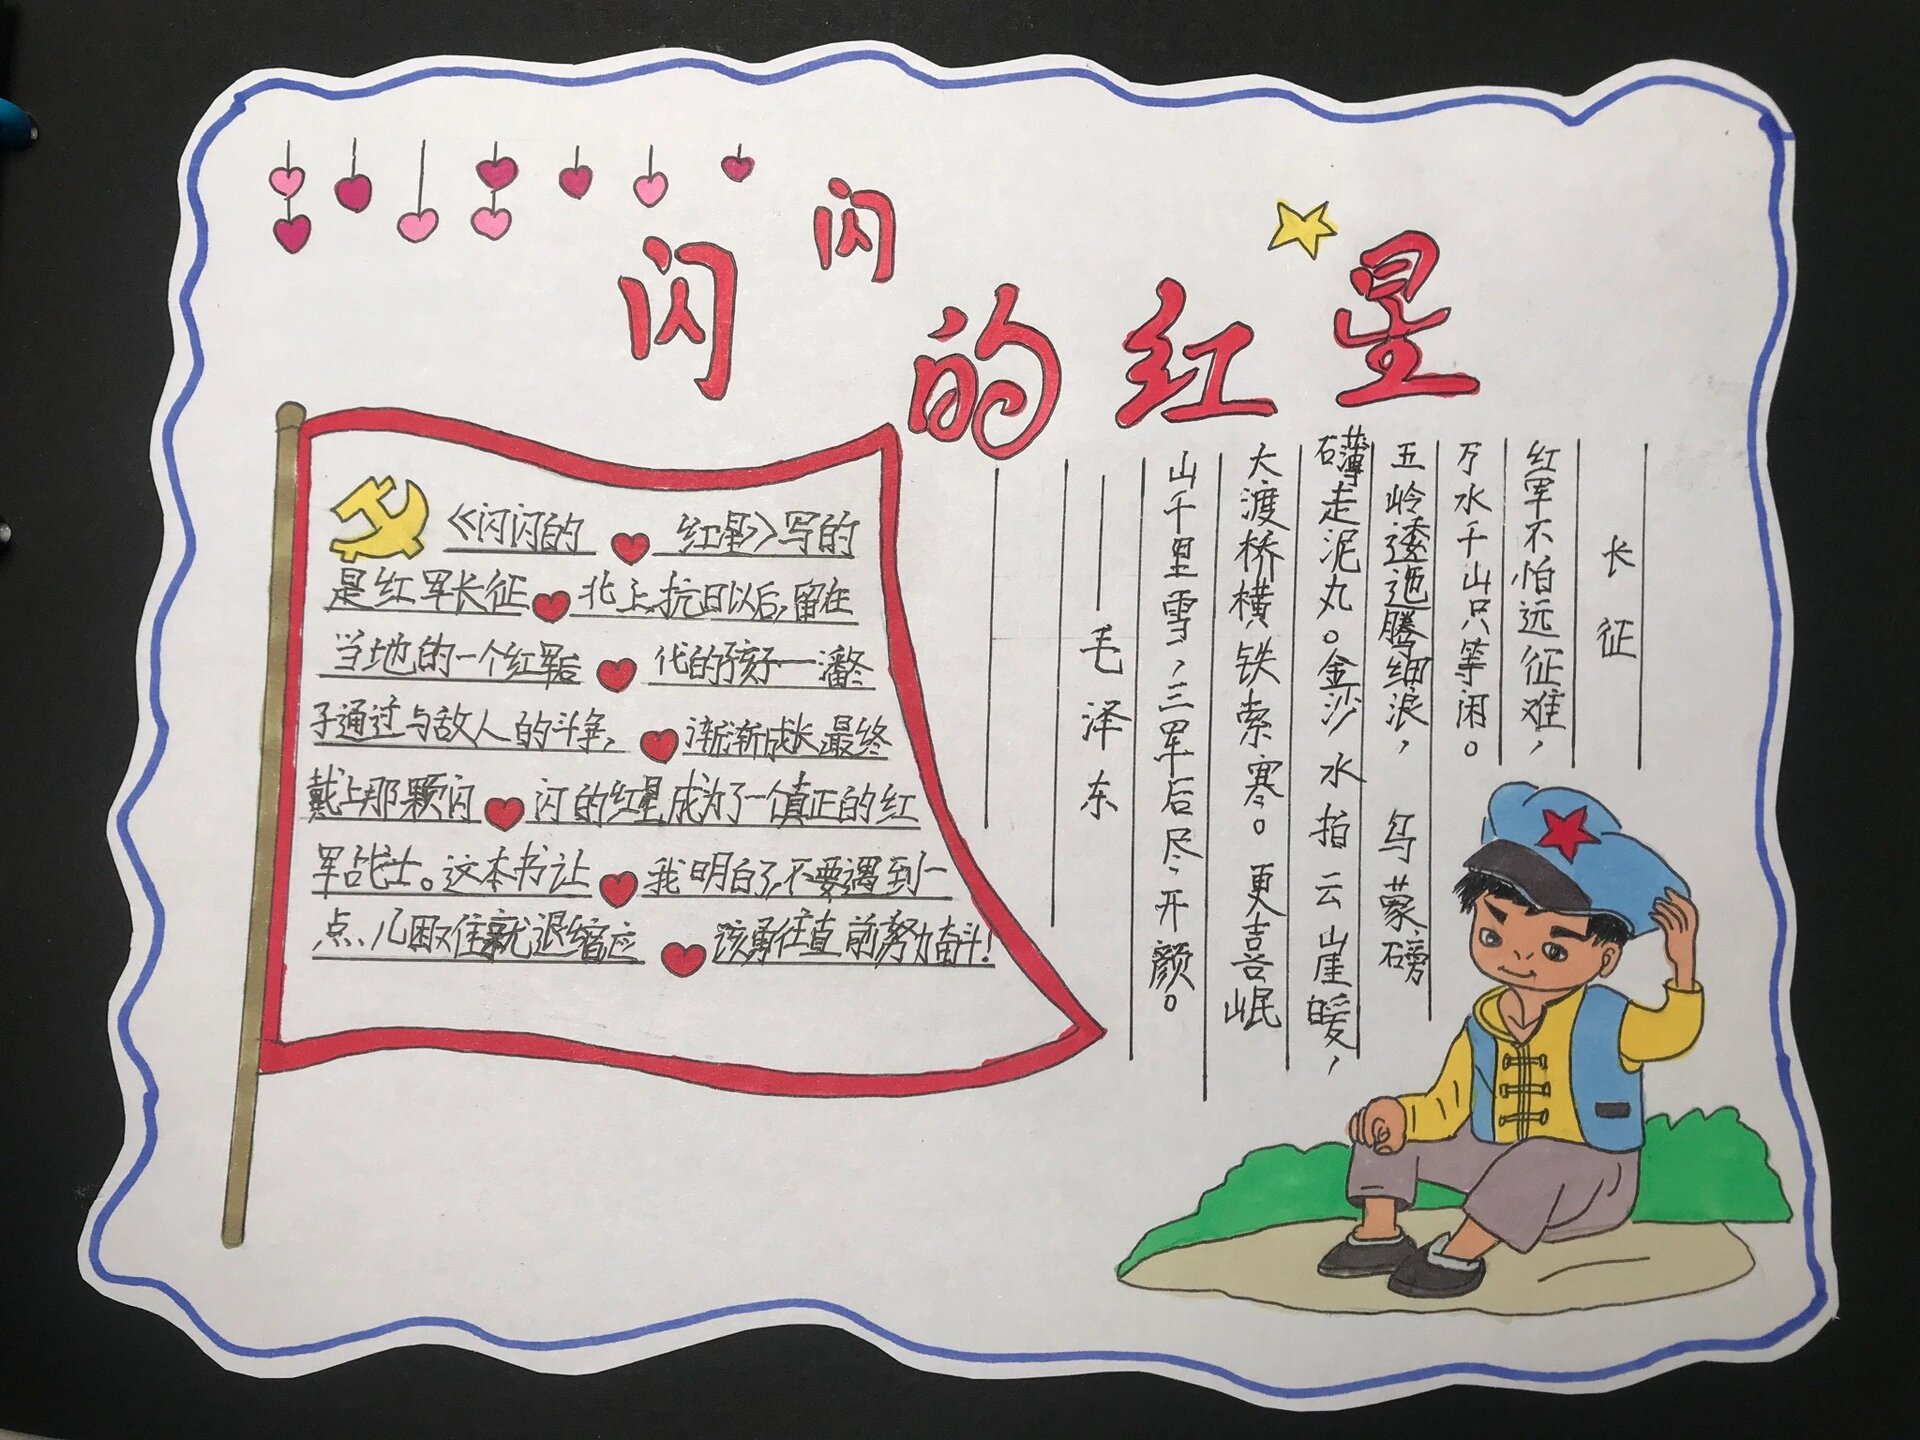 闪闪的红星
《闪闪的红星》写的
是红军长征北上抗日以后,留在
当地的一个红军后代的孩子——潘冬
子通过与敌人的斗争,渐渐成长,最终
戴上那颗闪闪的红星,成为了一个真正的红
军战士。这本书让我明白了,不要遇到一
点儿困难就退缩,应该勇往直前努力奋斗!
长征
红军不怕远征难,
万水千山只等闲。
五岭逶迤腾细浪,乌蒙磅
礴走泥丸。金沙水拍云崖暖,
大渡桥横铁索寒。更喜岷
山千里雪,三军后尽开颜。
——毛泽东